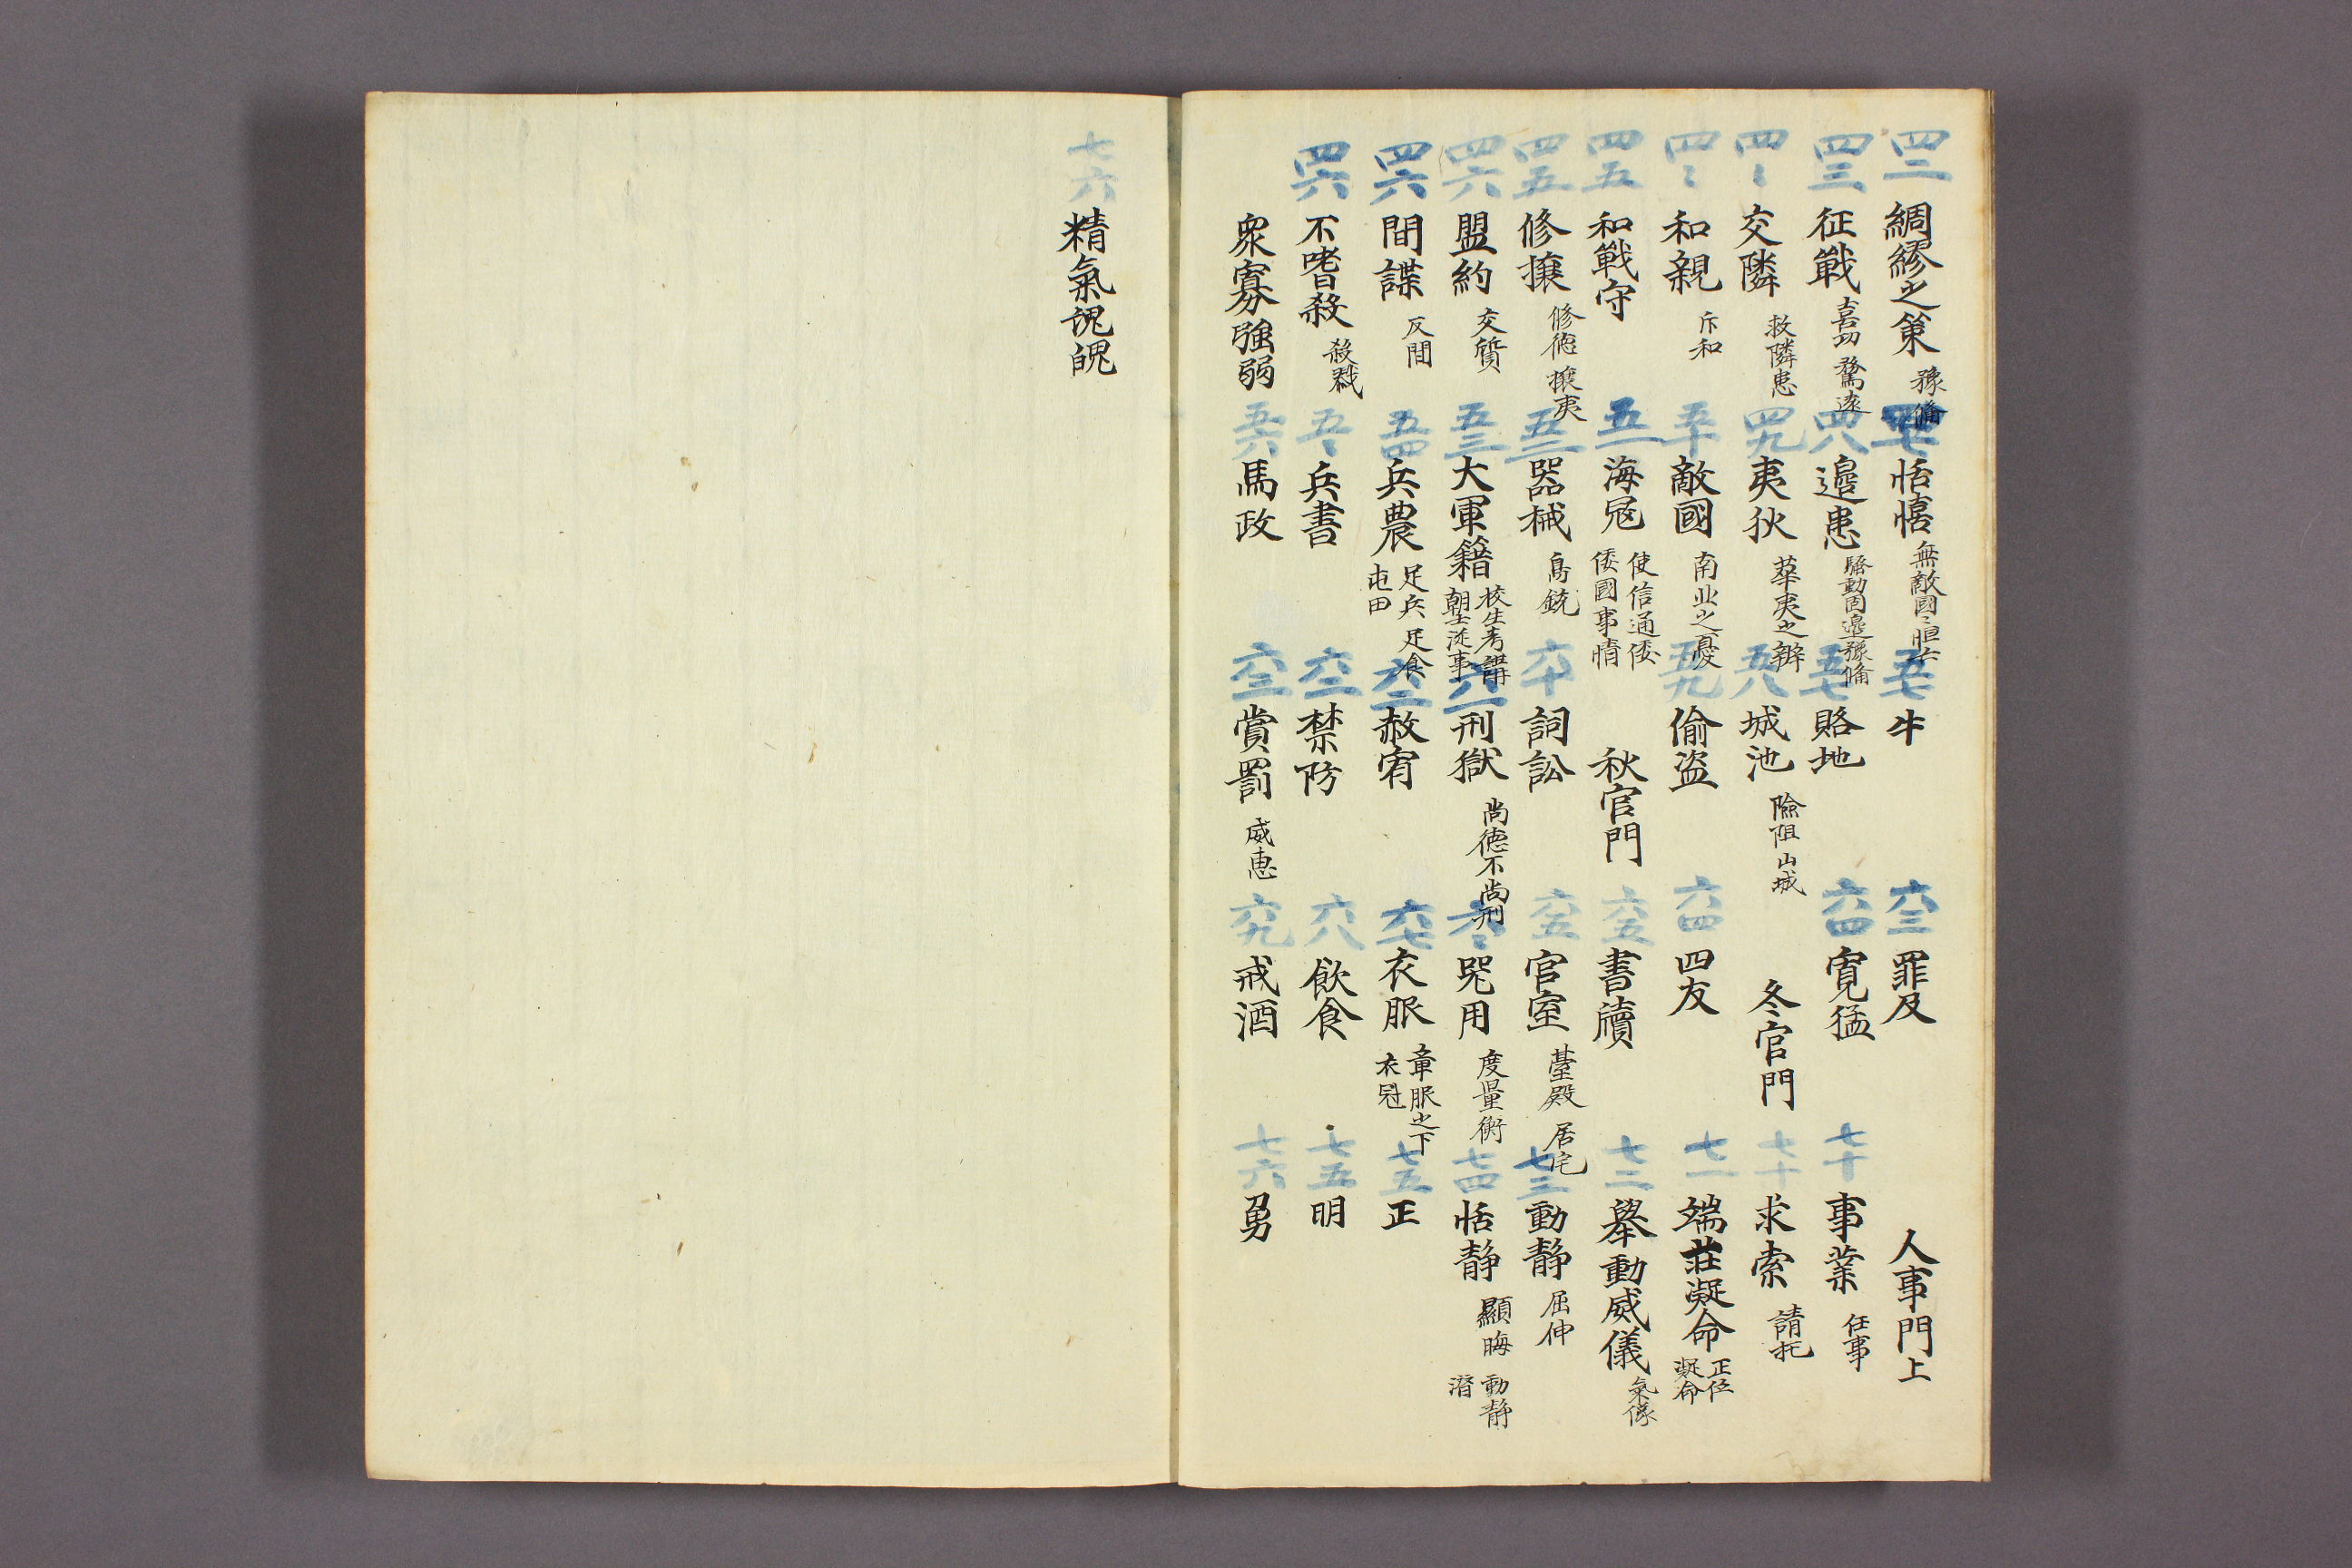 四二 綢繆之策 豫備
四三 征戰 喜功 騖遠
四〻 交隣 救隣患
四〻 和親 斥和
四五 和戰守
四五 修攘 修德 攘夷
四六 盟約 交質
四六 間諜 反間
四六 不嗜殺 殺戮
衆寡強弱
四七 恬憘 無敵國〻恒亡
四八 邊患 騷動固邊豫備
四九 夷狄 華夷之辨
五十 敵國 南北之憂
五一 海冦 使信通倭 倭國事情
五二 器械 鳥銃
五三 大軍籍 校生考講 朝士從事
五四 兵農 足兵 足食 屯田
五〻 兵書
五六 馬政
五七 牛
五七 賂地
五八 城池 險阻 山城
五九 偷盜
秋官門
六十 詞訟
六一 刑獄 尚德不尚刑
六二 赦宥
六二 禁防
六三 賞罰 威惠
六三 罪及
六四 寬猛
冬官門
六四 四友
六五 書牘
六五 宮室 臺殿 居宅
六〻 器用 度量衡
六七 衣服 章服之下 衣冠
六八 飲食
六九 戒酒
人事門上
七十 事業 任事
七十 求索 請托
七一 端莊凝命 正位凝命
七二 擧動威儀 氣像
七三 動静 屈伸
七四 恬静 顯晦 動静 潛
七五 正
七五 明
七六 勇
七六 精氣魂魄